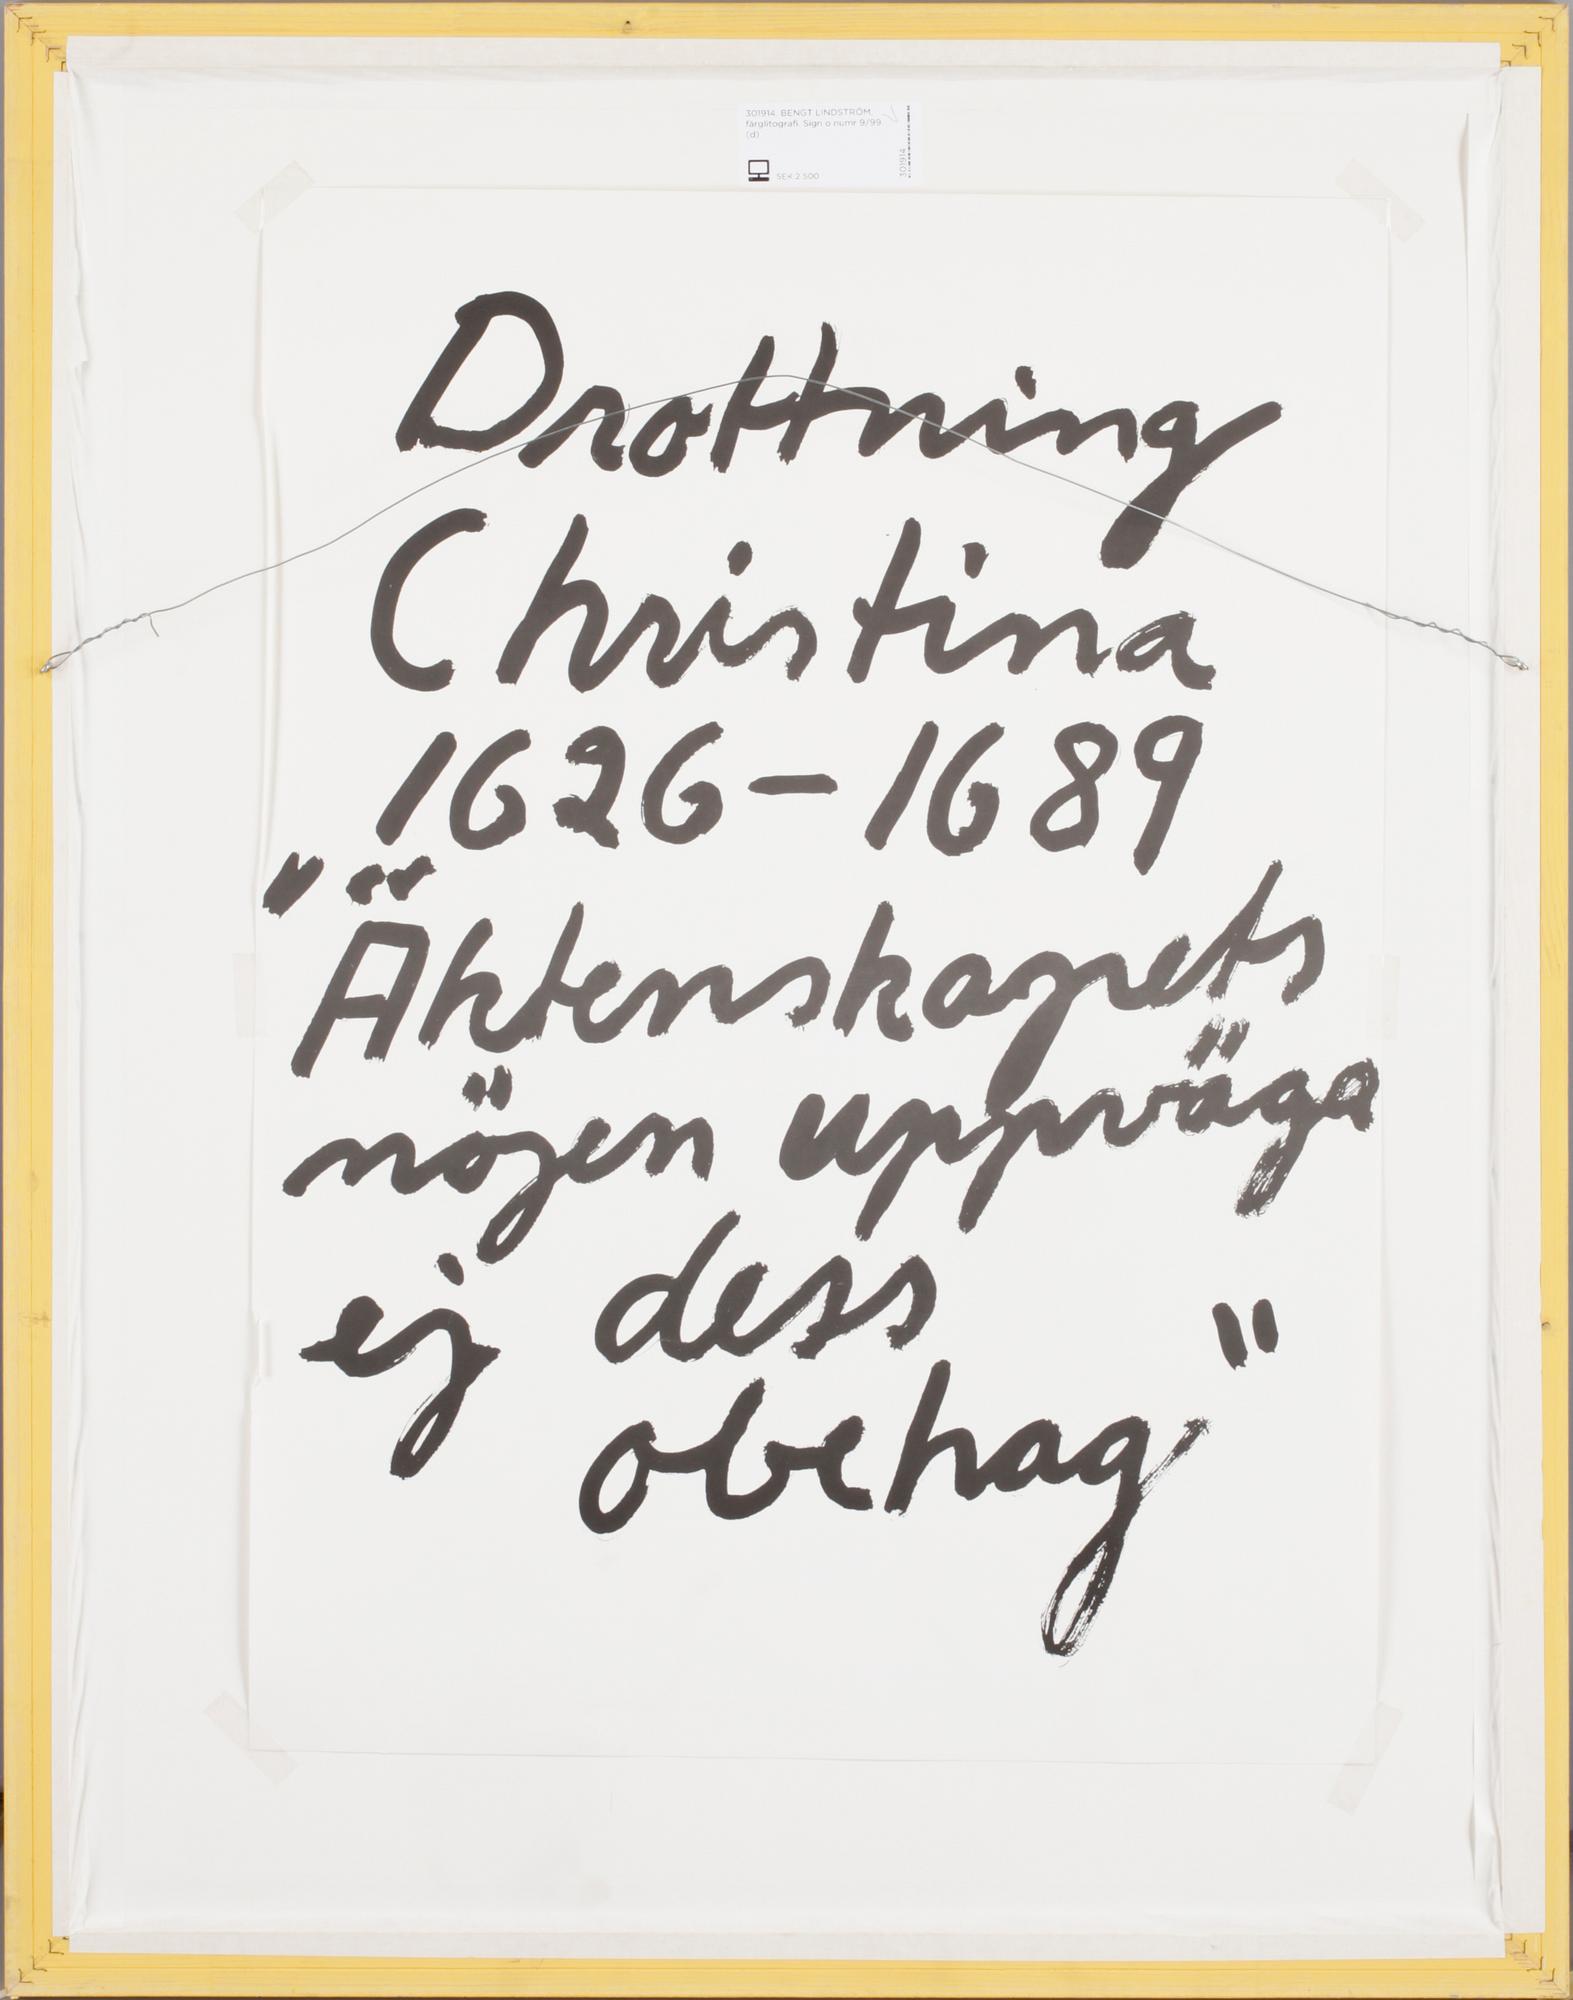 301914. BENGT LINDSTRÖM,
färglitografi. Sign o numr 9/99
(d)
SEK 2 500
301914
Drottning
Christina
1626-1689
"Äktenskapets
nöjen uppväga
ej dess
obehag"